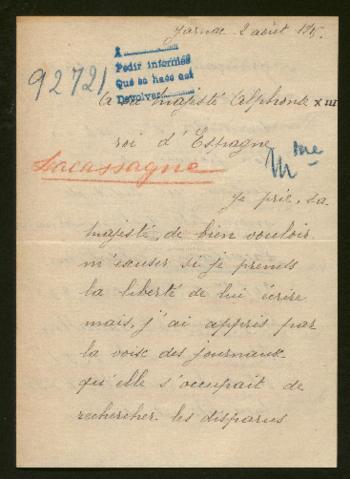 Jarnac 2 août 1915.
A
Pedir informes
Que se hace est
Devolver
92721
A sa Majesté Alphonse XIII
roi d'Espagne
Mme
Lacassagne
Je prie, sa
Majesté, de bien vouloir
m'excuser si je prends
la liberté de lui écrire
mais, j'ai appris par
la voix des journaux
qu'elle s'occupait de
rechercher les disparus